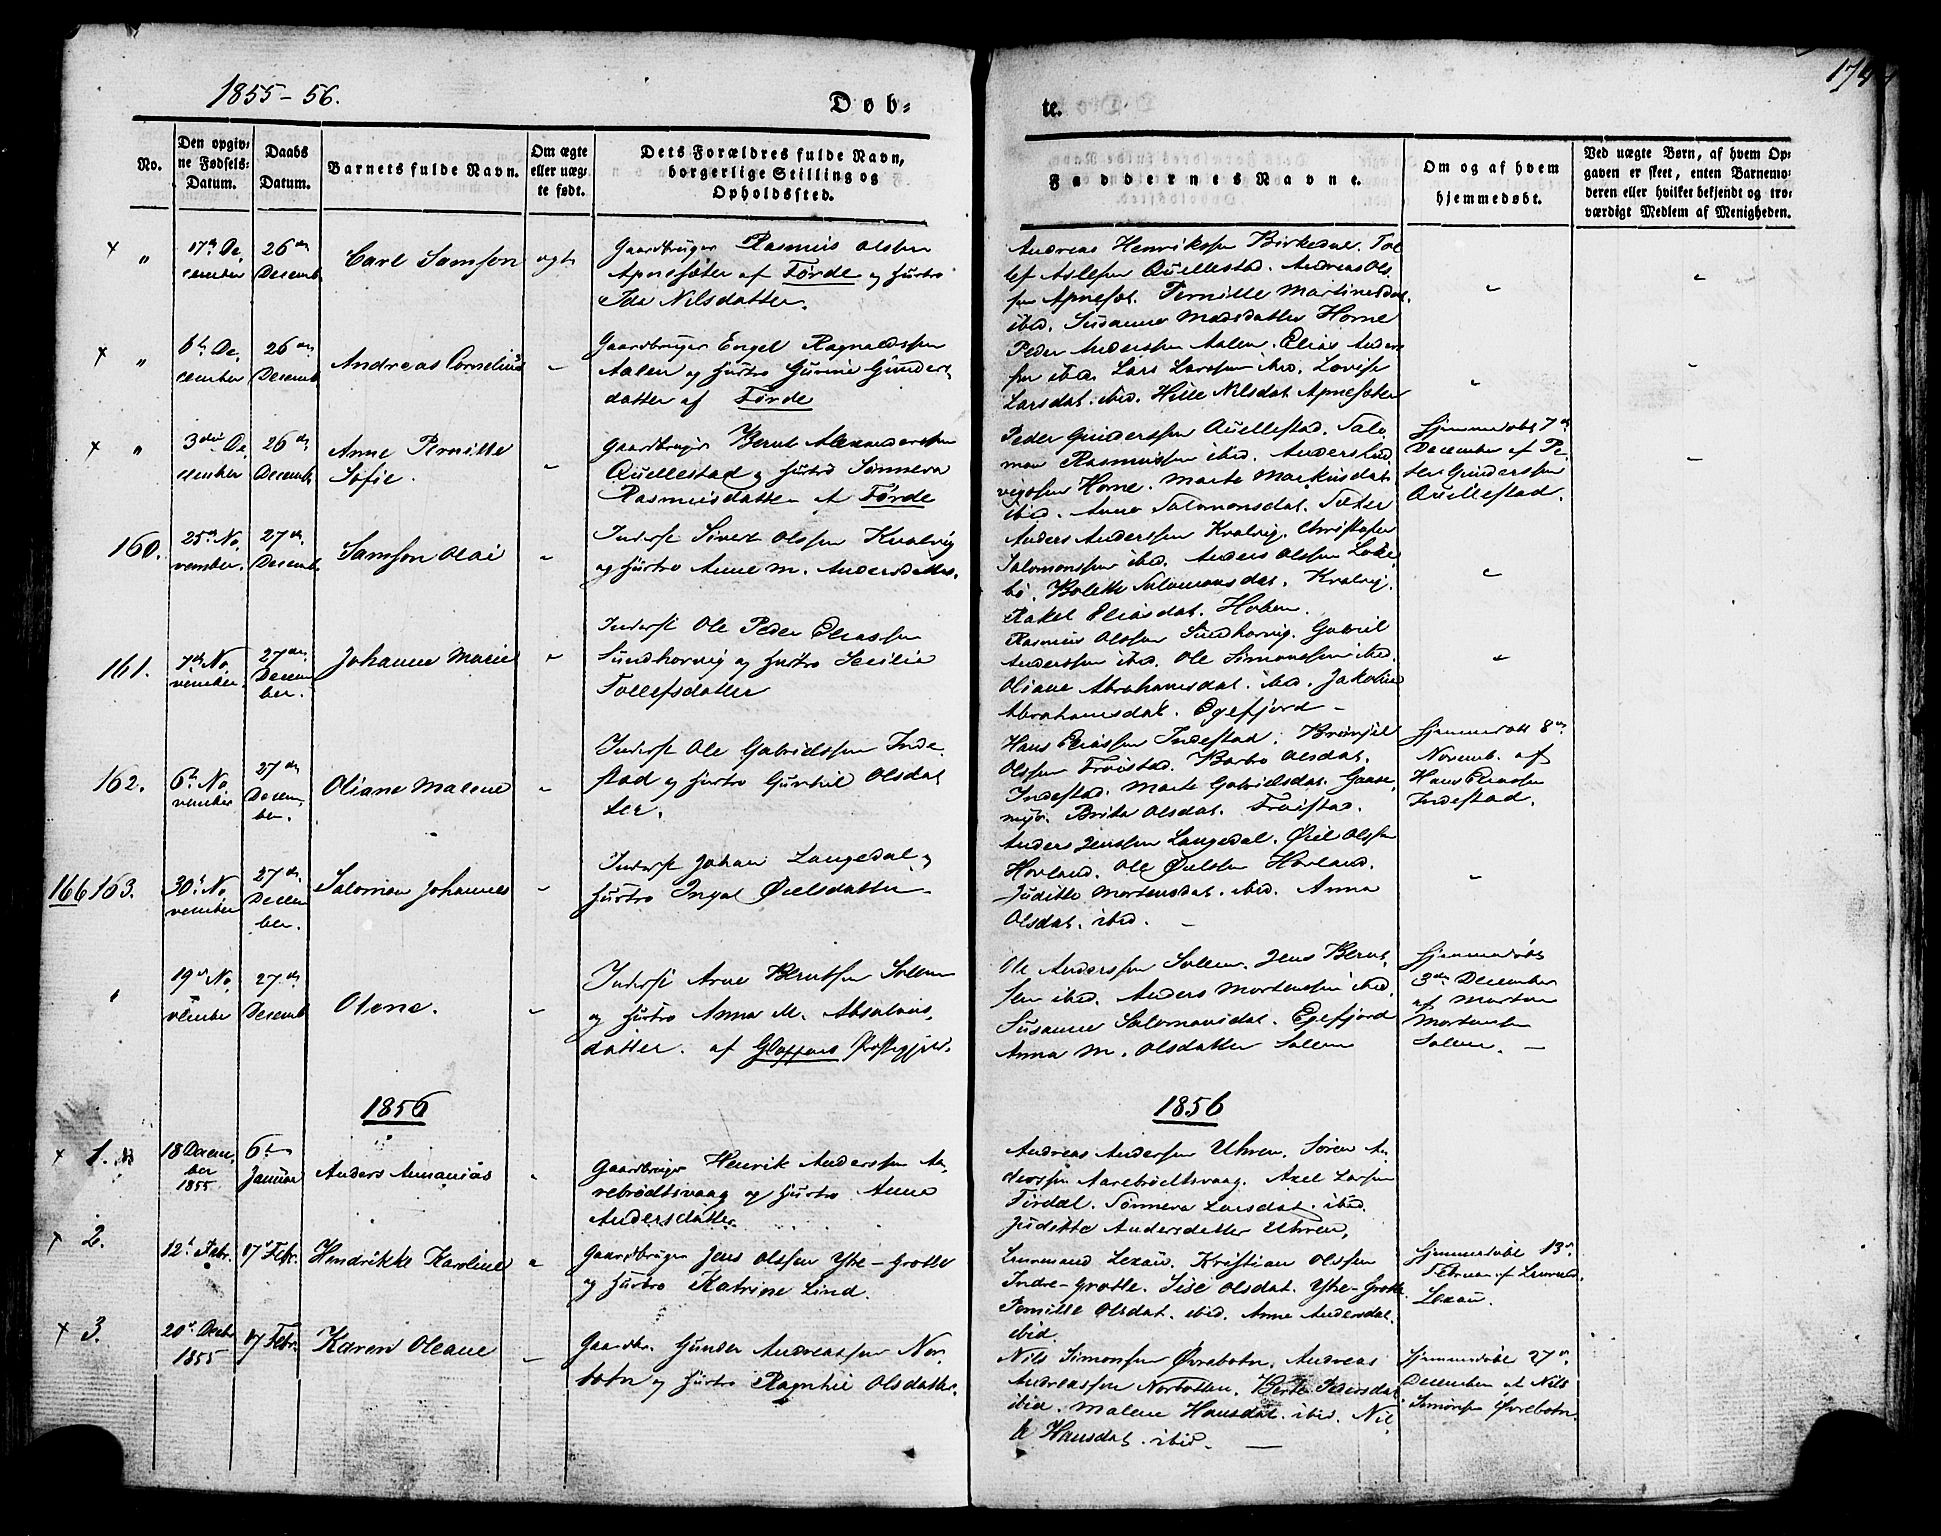 1855-56.
Døb=
te.
174
No.
Den opgiv=
ne Fødsels-
Datum.
Daabs
Datum.
Barnets fulde Navn.
Om ægte
eller uæg=
te født.
Dets Forældres fulde Navn,
borgerlige Stilling og
Opholdssted.
Faddernes Navne.
Om og af hvem
hjemmedøbt.
Ved uægte Børn, af hvem Op=
gaven er skeet, enten Barnemo=
deren eller hvilket bekjendt og tro=
værdigt Medlem af Menigheden.
× "
17de De,
cember
26de
Decemb
Carl Samson
ægte
Gaardbruger Rasmus Olssen
Apnesæter af Førde og Hustro
Ide Nilsdatter.
Andreas Henrikssen Birkedal. Tol
lef Aslessen Qvellestad. Andreas Ols
sen Apneset. Pernille Martinesdat.
ibid. Susanne Madsdatter Horne
× "
6te De,
cember
26de
Decemb
Andreas Cornelius
"
Gaardbruger Engel Ragnaldssen
Aalen og Hustro Gurine Gunders
datter af Førde
Peder Anderssen Aalen. Elias Anders
sen ibid. Lars Larssen ibid. Lovise
Larsdat. ibid. Hille Nilsdat Apnesæter
× "
3die De
cember
26de
Decemb
Anne Pernille
Sofie.
"
Gaardbruger Bernt Alexanderssen
Qvellestad og Hustro Sønneva
Rasmusdatter af Førde
Peder Gunderssen Qvellestad. Salo
mon Rasmussen ibid. Anders Lud
vigssen Horne. Marte Markusdat
ibid. Anne Salomonsdat. Sæter
Hjemmedøbt 7de
December af Pe-
der Gunderssen
Qvellestad.
160.
25de No,
vember.
27de
Decemb
Samson Olai
"
Inderst Sivert Olssen Kvalvig
og Hustro Anne M. Andersdatter.
Anders Anderssen Kvalvig. Christofer
Salomonssen ibid. Anders Olssen Løke
bø. Bolette Salomonsdat. Kvalvig.
Rakel Eliasdat. Hoben.
161.
7de No
vember.
27de
Decem
ber.
Johanne Marie
"
Inderst Ole Peder Eliassen
Sundhorvig og Hustro Secilie
Tollefsdatter
Rasmus Olssen Sundhorvig. Gabriel
Anderssen ibid. Ole Simonssen ibid.
Oliane Abrahamsdat. ibid. Jakobine
Abrahamsdat. Egefjord –
162.
6te No
vember
27de
Decem,
ber.
Oliane Malene
"
Inderst Ole Gabrielssen Inde
stad og Hustro Gunhil Olsdat
ter.
Hans Eliassen Indestad. Brønjel
Olssen Froistad. Barbo Olsdat.
Indestad. Marte Gabrielsdat. Gaase
myr. Brita Olsdat. Froistad.
Hjemmedøbt 8de
Novemb. af
Hans Eliassen
Indestad.
166 163.
30te No
vember
27de
Decem
ber.
Salomon Johannes
"
Inderst Johan Langedal og
Hustro Ingel Øielsdatter
Anders Jenssen Langedal. Øiel Olssen
Hovland. Ole Øielssen Hovland.
Juditte Mortensdat. ibid. Anna
Olsdat. ibid. –
"
19de No,
vember
27de
Decemb
Olene.
"
Inderst Arne Berntssen Solem
og Hustro Anna M. Absalons,
datter. af Gloppens Præstegjeld.
Ole Anderssen Solem. Jens Bernt,
sen ibid. Anders Mortenssen ibid.
Susanne Salomonsdat. Egefjord
Anna M. Olsdatter Solem
Hjemmedøbt
3die December
af Morten
Mortenssen
Solem. –
1856
1856
× 1.
18 Decem,
ber
1855
6te
Januar
Anders Annanias
"
Gaardbruger Henrik Anderssen Aa,
rebrødtsvaag og Hustro Anne
Andersdatter
Andreas Anderssen Uhren. Søren An
derssen Aarebrødtsvaag. Axel Larssen
Førdal. Sønneva Larsdat. ibid.
Judikta Andersdatter Uhren.
× 2.
12te Febr.
17de Febr.
Hendrikke Karoline
"
Gaardbruger Jens Olssen Ytre-Grotle
og Hustro Katrine Lind.
Lexau. Kristian Olssen
Indre-Grotle. Sise Olsdat. Ytre-Grotle
Pernille Olsdat. ibid. Anne Andersdat.
ibid.
Hjemmedøbt 13de
Februar af
Lexau.
× 3.
20de Decbr
1855
17 Febr.
Karen Oleane
"
Gaardbr. Gunder Andreassen Nor,
botn og Hustro Ragnhil Olsdatter.
Nils Simonssen Øvrebotn. Andreas
Andreassen Norbotten. Berte Hansdat
ibid. Malene Hansdat. ibid. Nil,
le Hansdat. ibid. –
Hjemmedøbt 27de
December af Nils
Simonssen Øvrebotn.